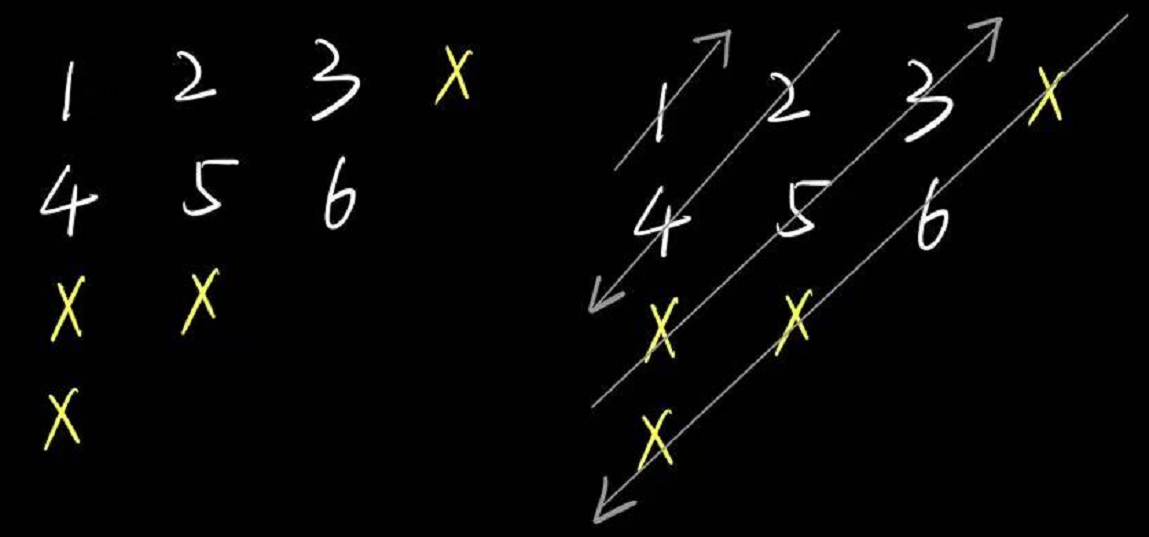 1 2 3 X
4 5 6
X X
X
1 2 3 X
4 5 6
X X
X